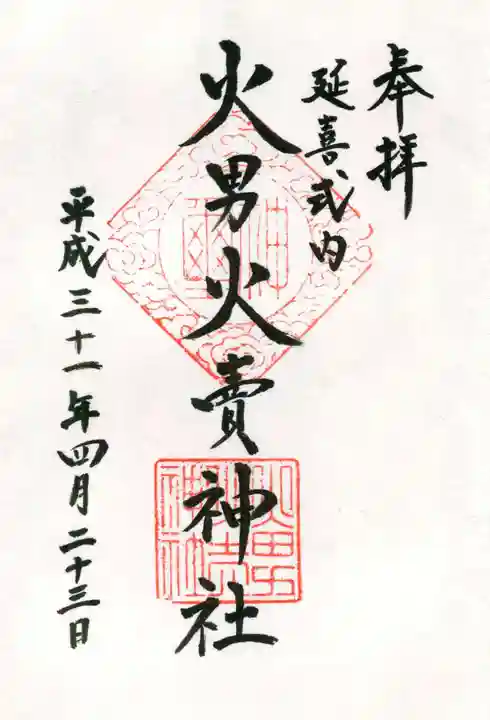 奉拝
延喜式内
火男火賣神社
平成三十一年四月二十三日